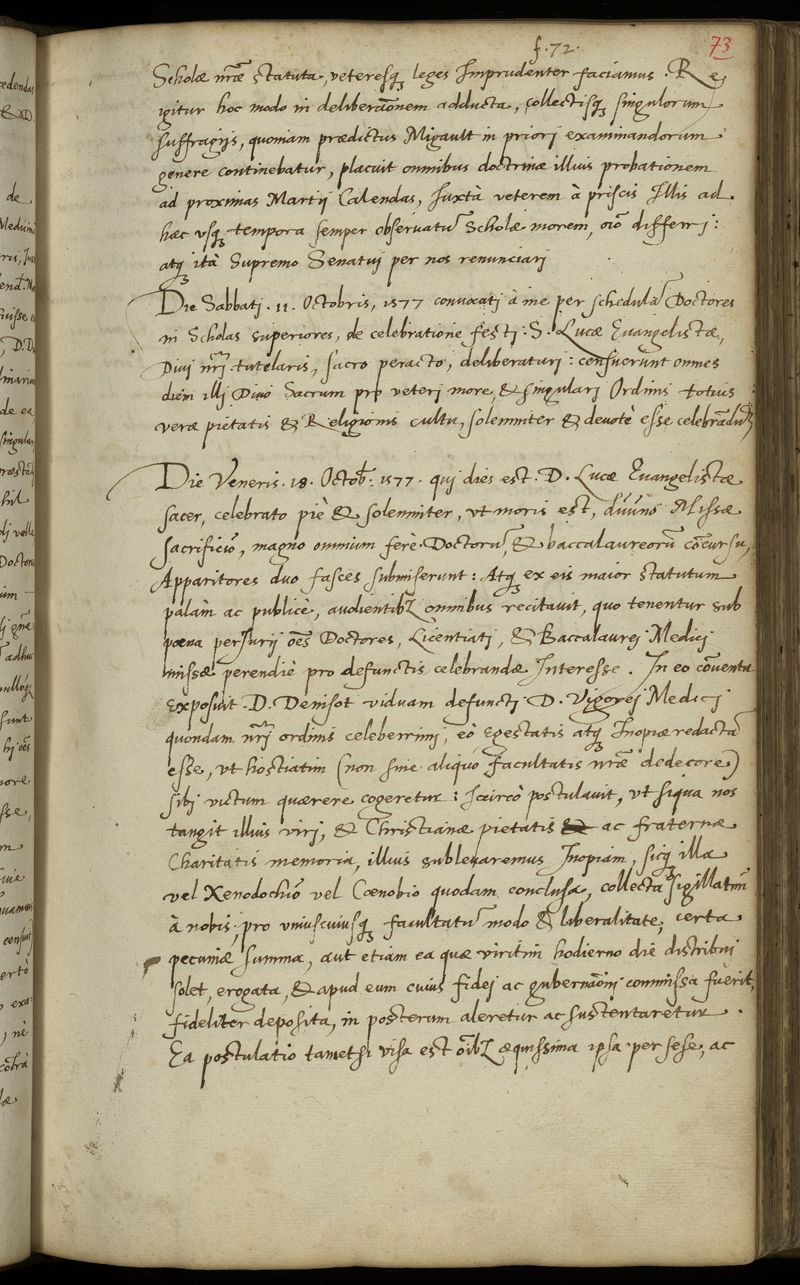 f. 72.
73
Scholæ nr̃æ statuta, veteresq; leges Imprudenter faciamus. Re
igitur hoc modo in deliberãonem adducta, collectisq; singulorum
suffragijs, quoniam prædictus Migault in priorj examinandorum
genere continebatur, placuit omnibus doctrinæ illius probationem
ad proximas Martij Calendas, Juxtà veterem à priscis Illis ad
hæc vsq; tempora semper obseruatũ Scholæ morem, oĩo differrj:
atq; ità Supremo Senatuj per nos renunciarj
Die Sabbati. 11. Octobris, 1577 conuocatj à me per schedulã Doctores
in Scholas superiores, de celebratione festj. S. Lucæ Euangelistæ,
Diuj nr̃j tutelaris, sacro peracto, deliberaturj: censuerunt omnes
diem illj Diuo Sacrum pro veterj more, & singularj Ordinis totius
veræ pietatis & Religionis cultu, solemniter & deuotè esse celebrãdũ
Die Veneris. 18. Octob. 1577. quj dies est. D. Lucæ Euangelistæ
sacer, celebrato piè & solemniter, vt moris est, diuino Missæ
sacrificio, magno omnium ferè Doctorũ & baccalaureorũ cõcursu,
Apparitores duo fasces submiserunt: Atq; ex eis maior statutum
palàm ac publicè, audientibꝰ omnibus recitauit, quo tenentur sub
pœna perJurij oẽs Doctores, Licentiatj, & Baccalaurej Medicj
missæ perendiè pro defunctis celebrandæ Interesse. In eo cõuentu
exposuit. D. Denisot viduam defunctj D. Vigorej Medicj
quondam nr̃j ordinis celeberrimj, eò egestatis atq; Inopiæ redactã
esse, vt hostiatim (non sine aliquo facultatis nr̃æ dedecore)
sibj victum quærere cogeretur: Iccircò postulauit, vt siqua nos
tangit illius virj, & Christianæ pietatis ac fraternæ
Charitatis memoria, illius subleuaremus Inopiam, sicq; illa
vel Xenodochio vel Cœnobio quodam conclusa, collecta sigillatim
à nobis, pro vniuscuiusq; facultatũ modo & liberalitate, certa
pecuniæ summa, aut etiam ea quæ viritim hodierno die distribuj
solet, erogata, & apud eum cuius fidej ac gubernãonj commissa fuerit,
fideliter deposita, in posterum aleretur ac sustentaretur.
Ea postulatio tametsi visa est oĩbꝰ æquissima ipsa per sese, ac